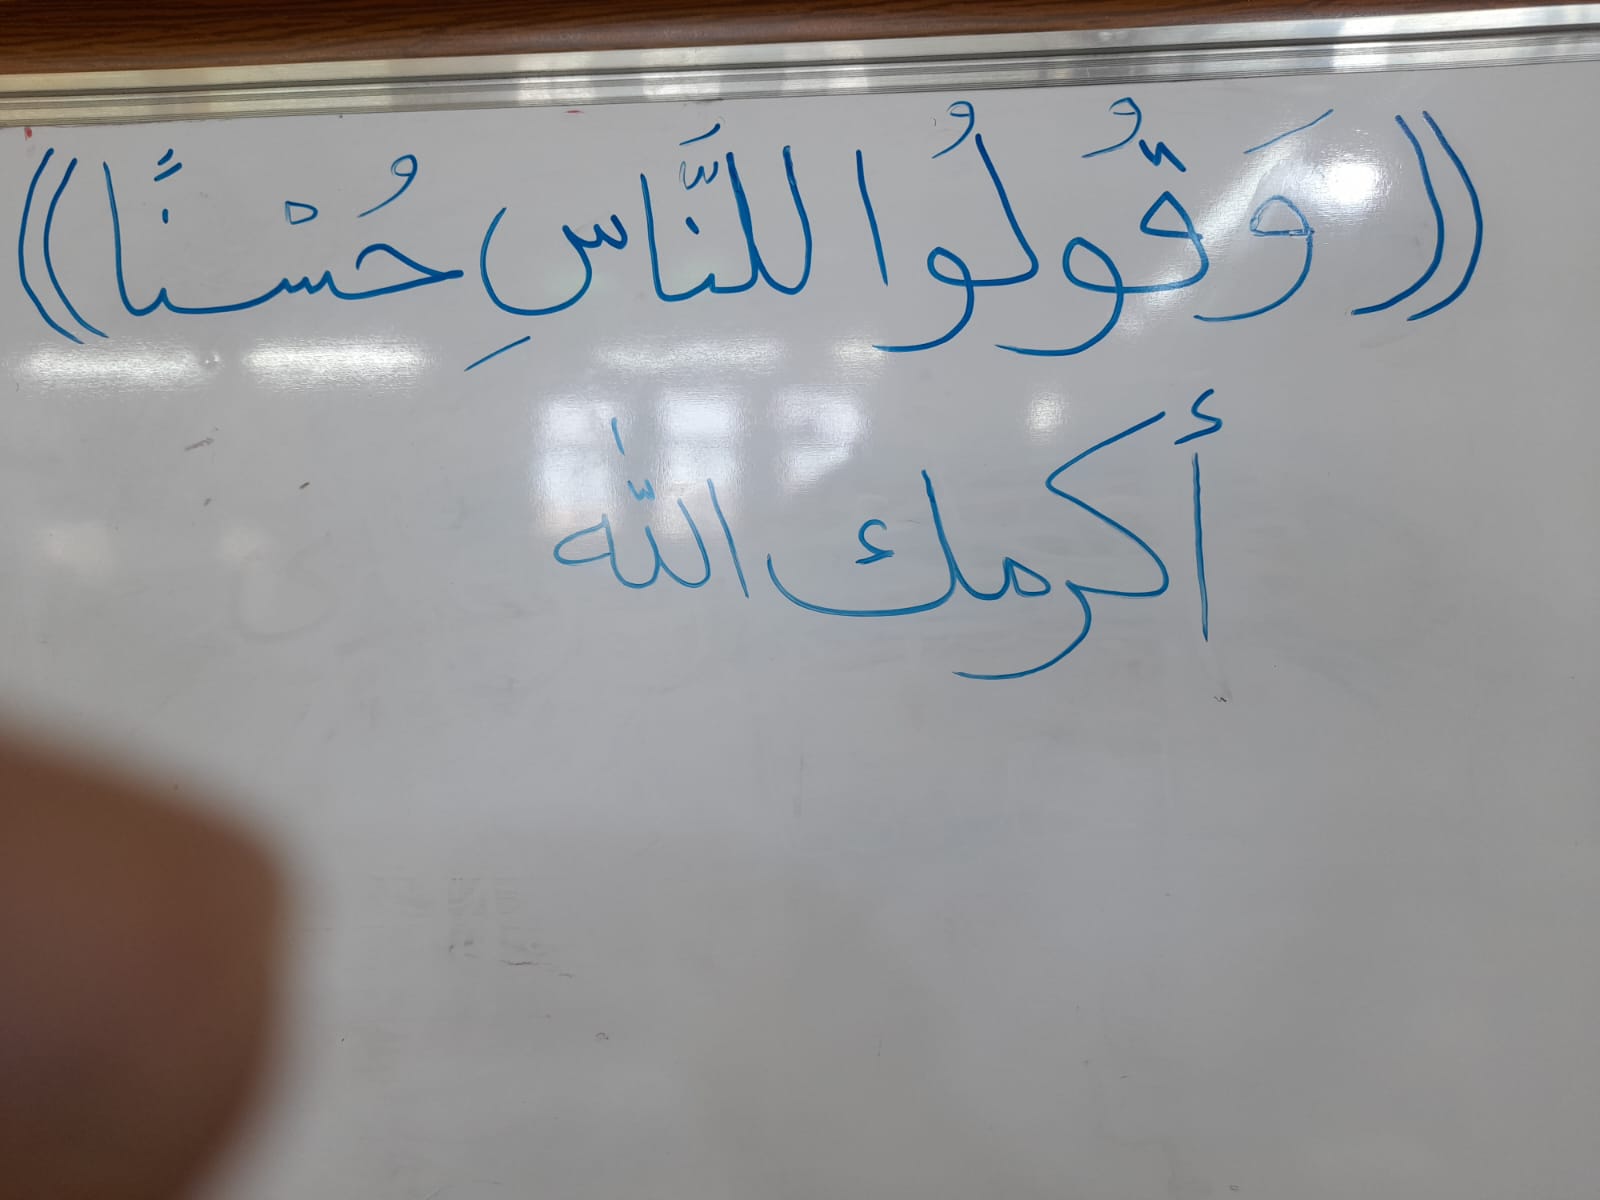 ((وَقُولُوا للنَّاسِ حُسْنًا))
أكرمك اللّٰه